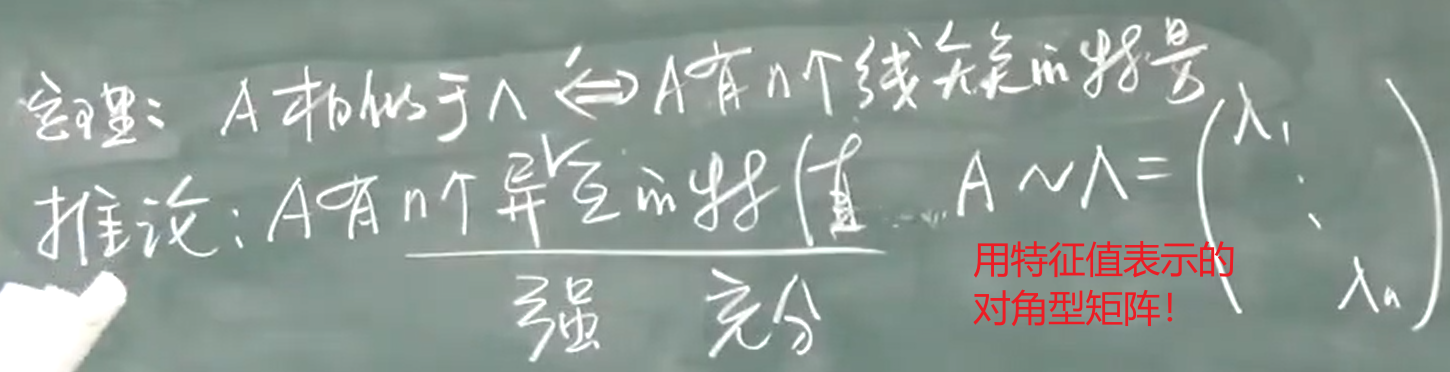 定理: A相似于Λ ⇔ A有n个线无关的特量
推论: A有n个异互的特值 ... A ~ Λ = (λ₁ ⋱ λₙ)
强 充分
用特征值表示的
对角型矩阵!